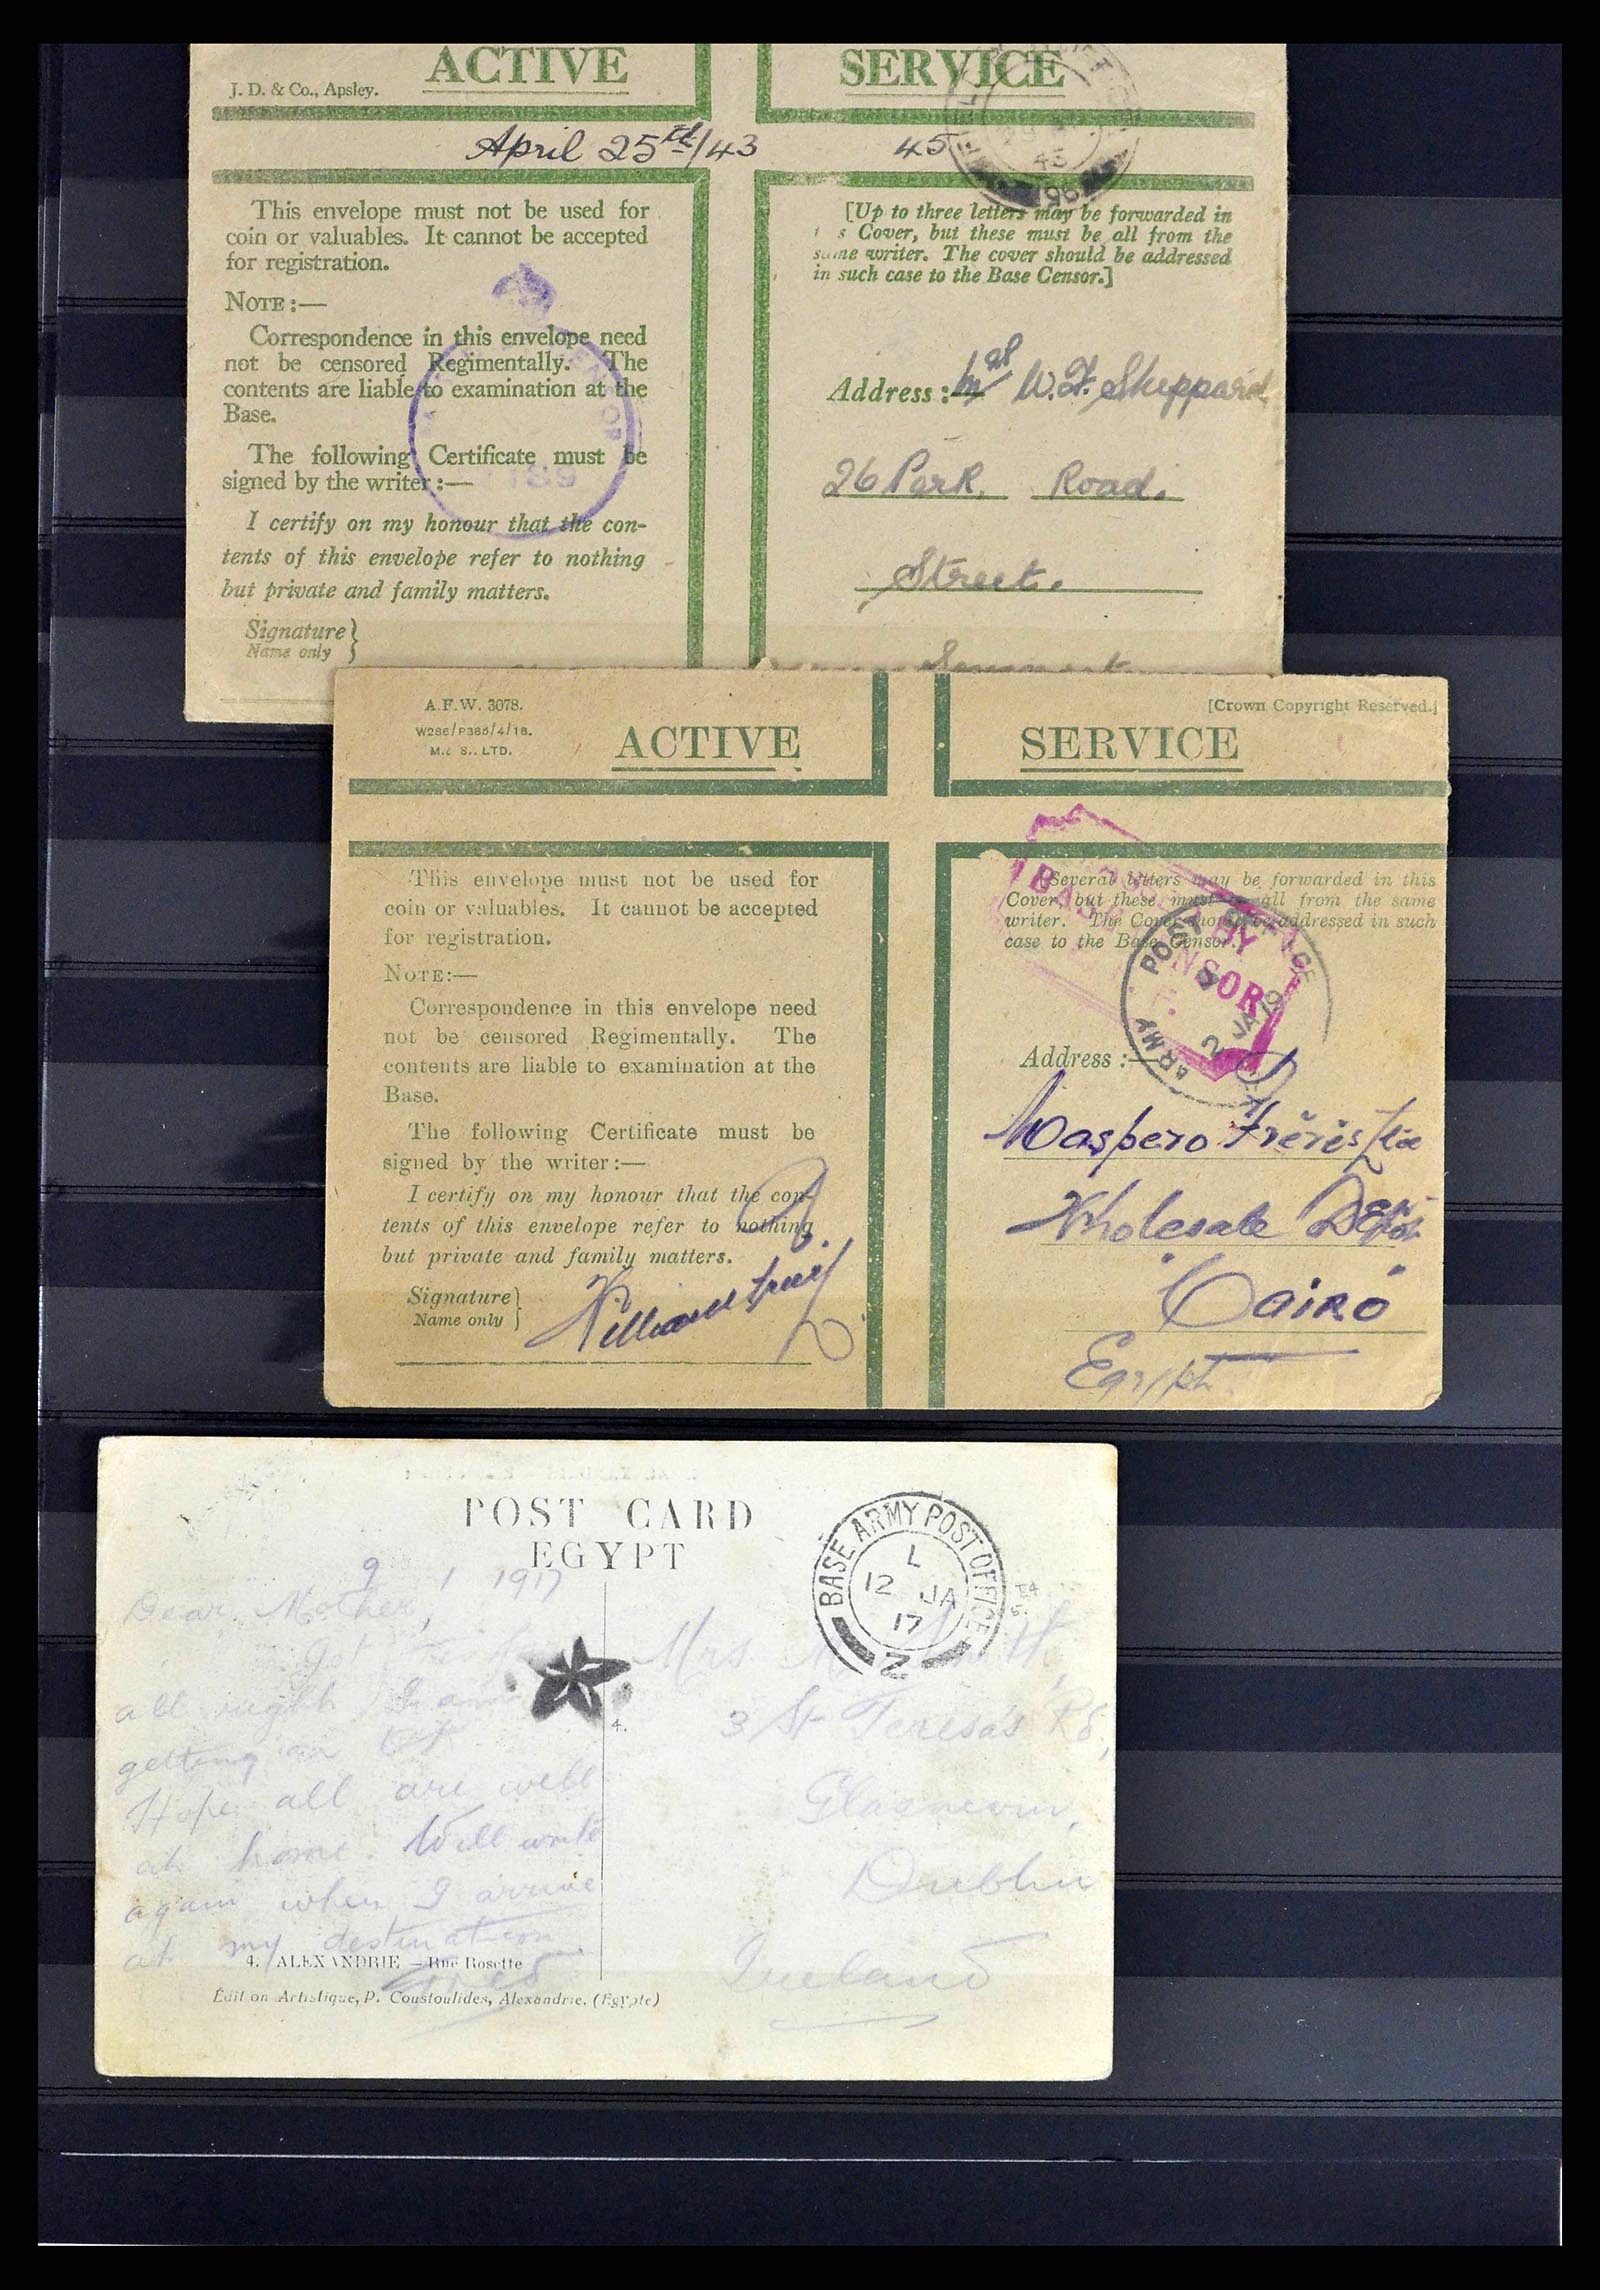 ACTIVE SERVICE
J. D. & Co., Apsley.
April 25th/43 45
43
96
This envelope must not be used for
coin or valuables. It cannot be accepted
for registration.
NOTE :—
Correspondence in this envelope need
not be censored Regimentally. The
contents are liable to examination at the
Base.
The following Certificate must be
signed by the writer :—
I certify on my honour that the con-
tents of this envelope refer to nothing
but private and family matters.
Signature
Name only
189
[Up to three letters may be forwarded in
s Cover, but these must be all from the
same writer. The cover should be addressed
in such case to the Base Censor.]
Address : W. F. Sheppard
26 Park Road.
Street.
A.F.W. 3078.
[Crown Copyright Reserved.]
ACTIVE SERVICE
This envelope must not be used for
coin or valuables. It cannot be accepted
for registration.
NOTE:—
Correspondence in this envelope need
not be censored Regimentally. The
contents are liable to examination at the
Base.
The following Certificate must be
signed by the writer:—
I certify on my honour that the con-
tents of this envelope refer to nothing
but private and family matters.
Signature
Name only
[Several letters may be forwarded in this
Cover, but these must be all from the same
writer. The Cover should be addressed in such
case to the Base Censor.]
ARMY POST OFFICE
2 JA 19
Address :—
Maspero Frères
Wholesale
Cairo
Egypt
POST CARD
EGYPT
BASE ARMY POST OFFICE
L
12 JA
17
Z
9 1 1917
Dear Mother,
all right I am
getting on
Hope all are well
at home. Will write
again when I arrive
at my destination
4.
Mrs
3 St Teresa's Rd,
Glasnevin,
Dublin
Ireland
4. ALEXANDRIE — Rue Rosette
Edition Artistique, P. Coustoulides, Alexandrie. (Egypte)